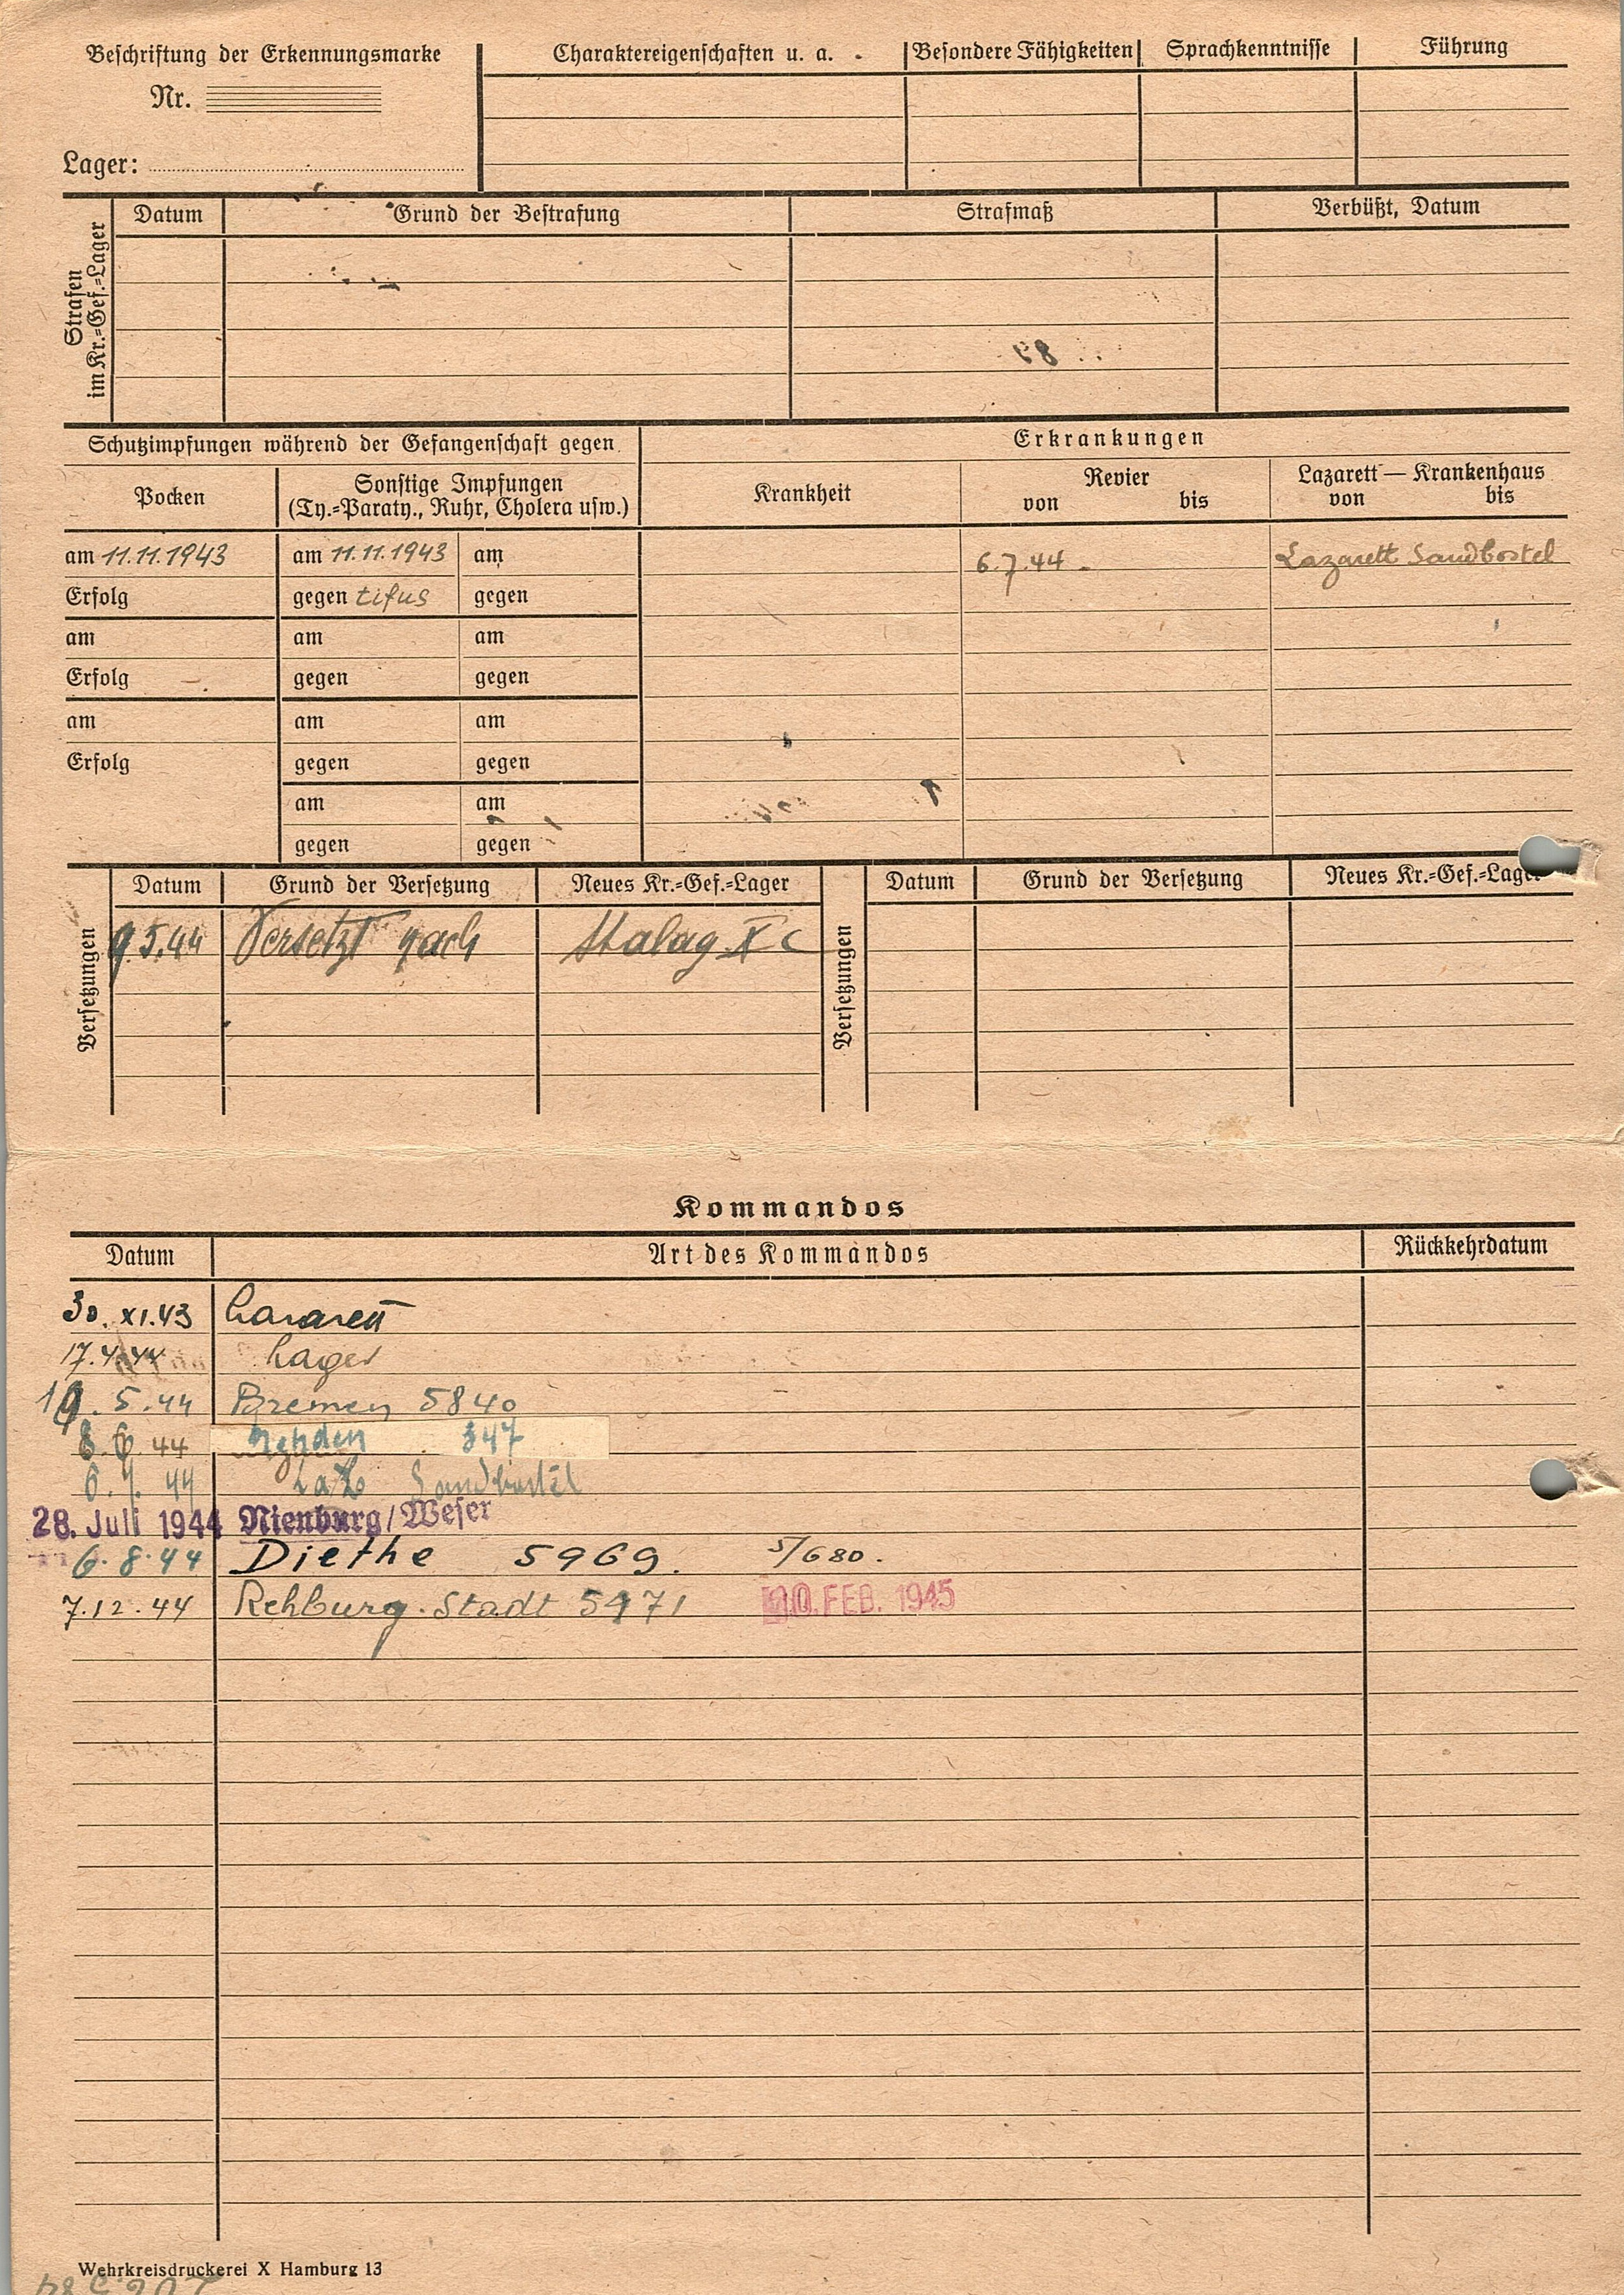 Beschriftung der Erkennungsmarke
Nr.
Lager:
Charaktereigenschaften u. a. Besondere Fähigkeiten Sprachkenntnisse Führung
Strafen im Kr.=Gef.=Lager
Datum Grund der Bestrafung Strafmaß Verbüßt, Datum
Schutzimpfungen während der Gefangenschaft gegen Erkrankungen
Pocken Sonstige Impfungen Krankheit Revier Lazarett — Krankenhaus
(Ty.=Paraty., Ruhr, Cholera usw.) von bis von bis
am 11.11.1943 am 11.11.1943 am 6.7.44. Lazarett Sandbostel
Erfolg gegen tifus gegen
am am am
Erfolg gegen gegen
am am am
Erfolg gegen gegen
am am
gegen gegen
Versetzungen Datum Grund der Versetzung Neues Kr.=Gef.=Lager Versetzungen Datum Grund der Versetzung Neues Kr.=Gef.=Lager
9.5.44 Versetzt nach Stalag X C
Kommandos
Datum Art des Kommandos Rückkehrdatum
30. XI. 43 Lazarett
17.4.44 Lager
19.5.44 Bremen 5840
44 347
6.7.44 Laz Sandbostel
28. Juli 1944 Nienburg/Weser
6.8.44 Diethe 5969. 5/680.
7.12.44 Rehburg. Stadt 5971 FEB. 1945
Wehrkreisdruckerei X Hamburg 13